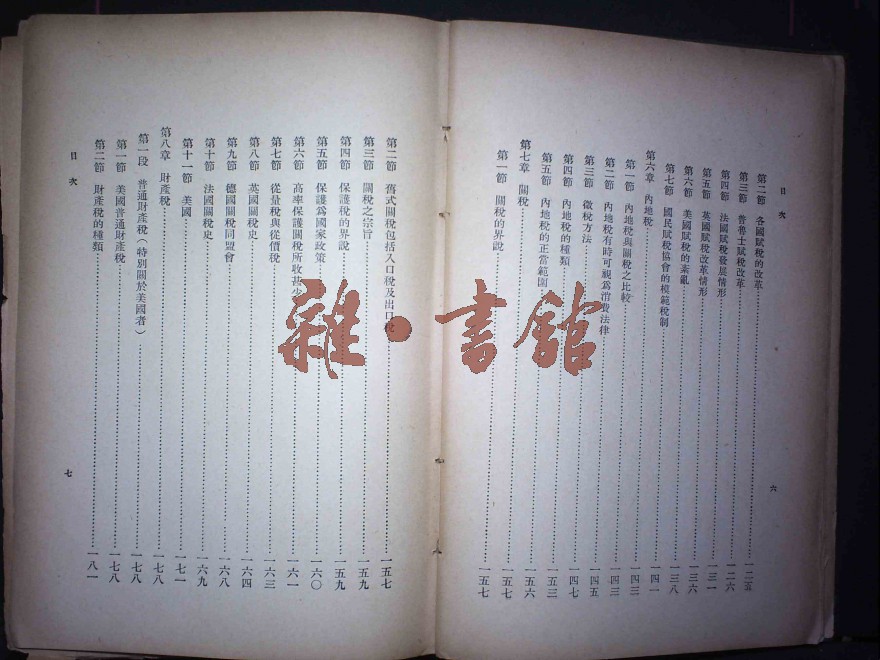 目次
第二節 各國賦稅的改革 一二五
第三節 普魯士賦稅改革 一二六
第四節 法國賦稅發展情形 一三一
第五節 英國賦稅改革情形 一三六
第六節 美國賦稅的紊亂 一三八
第七節 國民賦稅協會的模範稅制 一四一
第六章 內地稅 一四三
第一節 內地稅與關稅之比較 一四三
第二節 內地稅有時可視爲消費法律 一四五
第三節 徵稅方法 一四七
第四節 內地稅的種類
第五節 內地稅的正當範圍 一五三
第七章 關稅 一五六
第一節 關稅的界說 一五七
六
目次
第二節 舊式關稅包括入口稅及出口稅 一五七
第三節 關稅之宗旨 一五九
第四節 保護稅的界說 一五九
第五節 保護爲國家政策 一六〇
第六節 高率保護關稅所收甚少 一六一
第七節 從量稅與從價稅 一六三
第八節 英國關稅史 一六四
第九節 德國關稅同盟會 一六八
第十節 法國關稅史 一六九
第十一節 美國 一七一
第八章 財產稅 一七八
第一段 普通財產稅(特別關於美國者) 一七八
第一節 美國普通財產稅 一七八
第二節 財產稅的種類 一八一
七
雜·書館